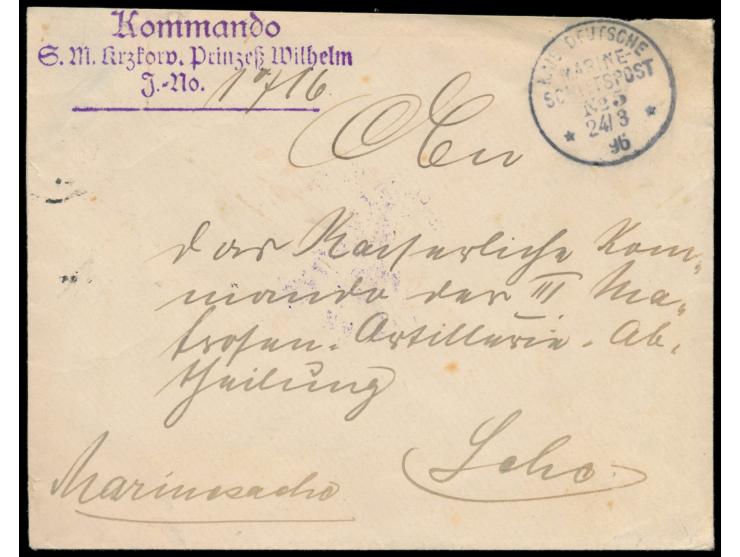 Kommando
S. M. Krzkorv. Prinzeß Wilhelm
J.-No. 1716.
KAIS. DEUTSCHE
MARINE-
SCHIFFSPOST
No 5
24/3
96
An
das Kaiserliche Kom-
mando der III Ma-
trosen-Artillerie-Ab-
theilung
Lehe.
Marinesache